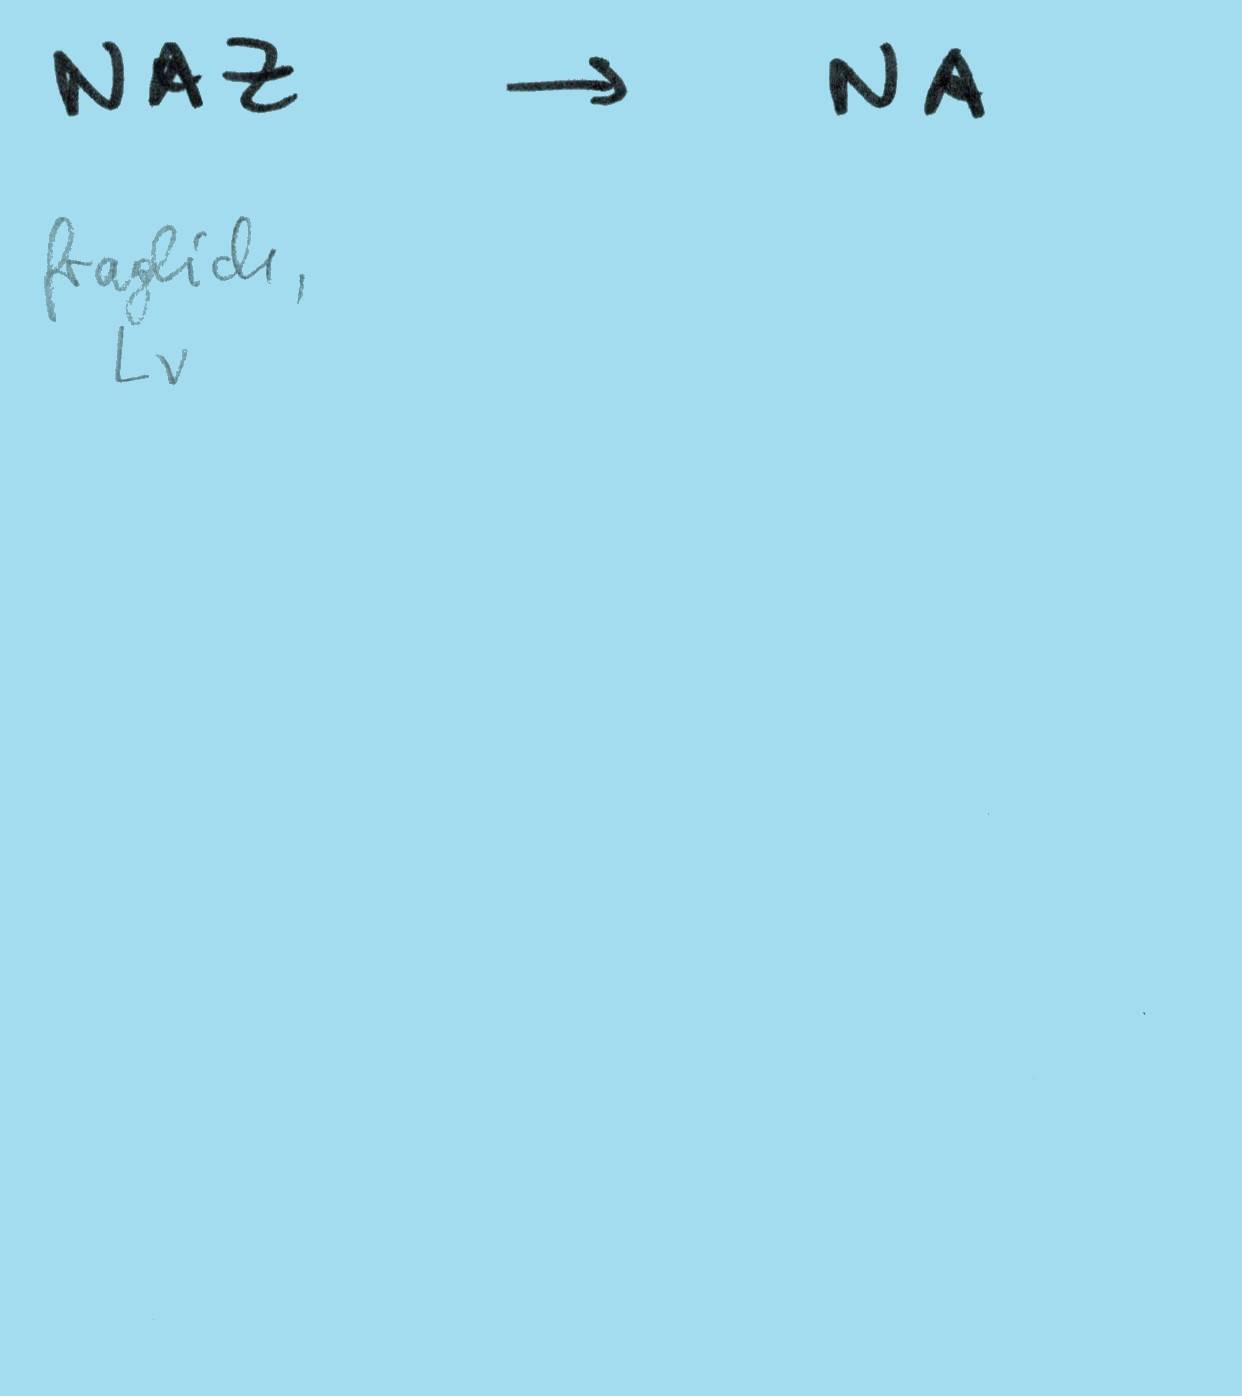 NAZ → NA
fraglich,
Lv